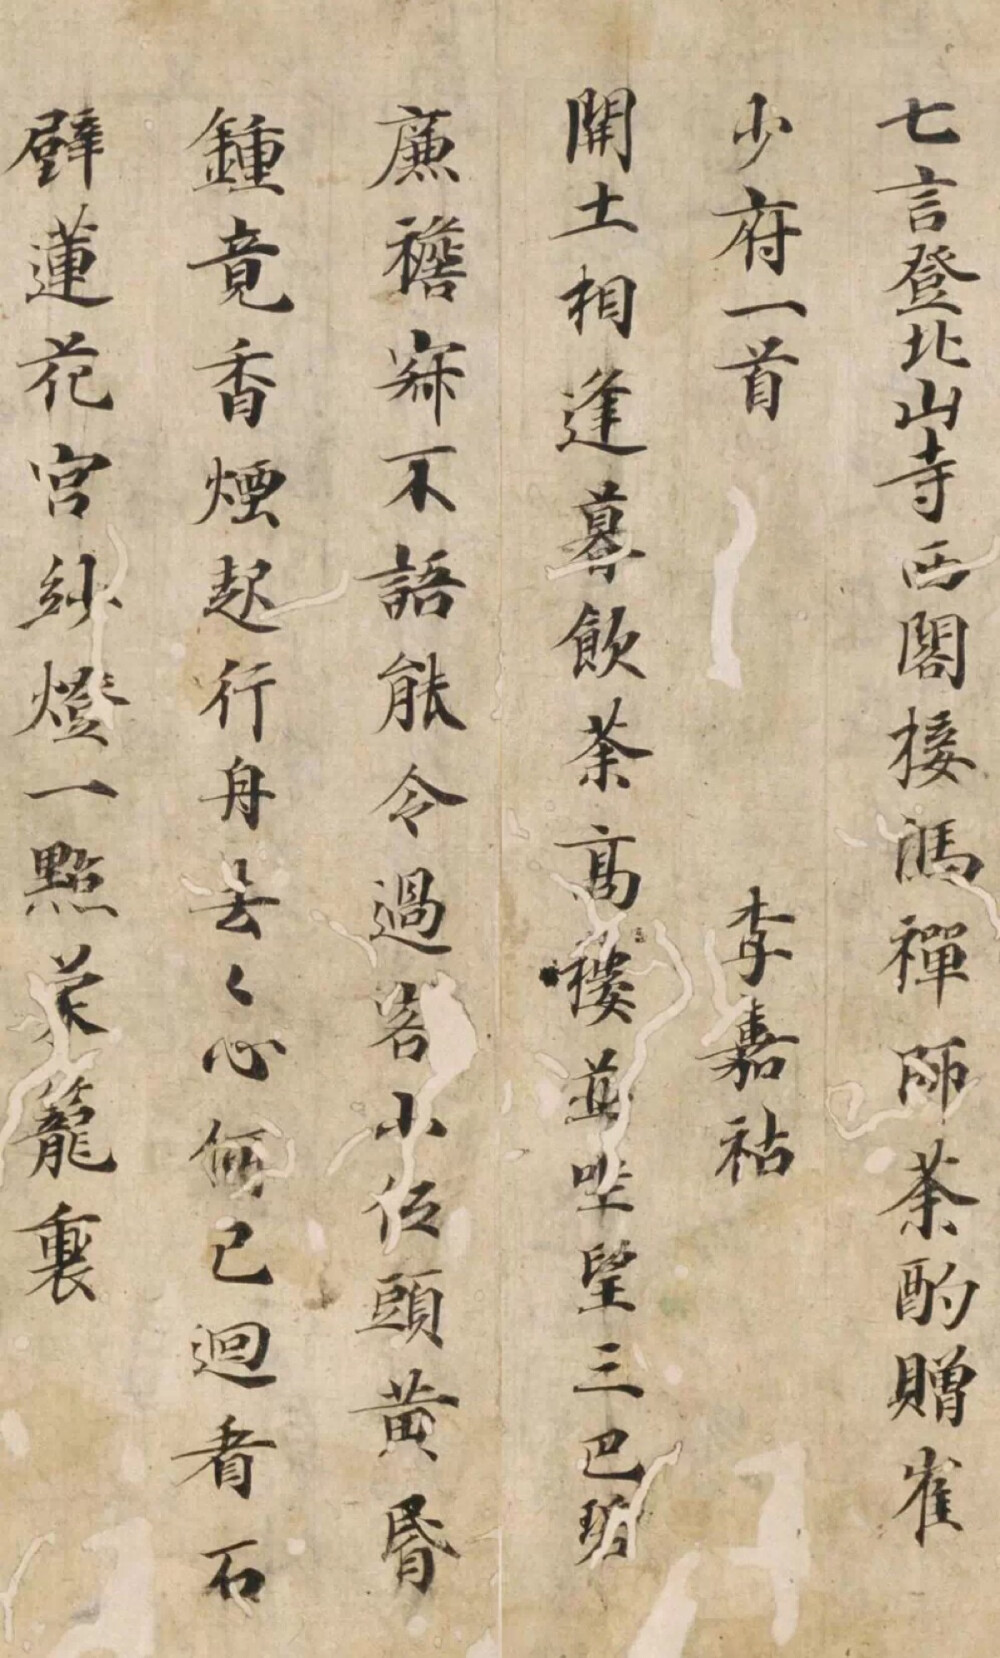 七言登北山寺西閣接馮禪師茶酌贈崔
少府一首 李嘉祐
開士相逢暮飲茶高樓並坐望三巴
簾襜寂不語能令過客小低頭黃昏
鍾竟香煙起行舟去〻心何已迴看石
壁蓮花宮紗燈一點籠裏